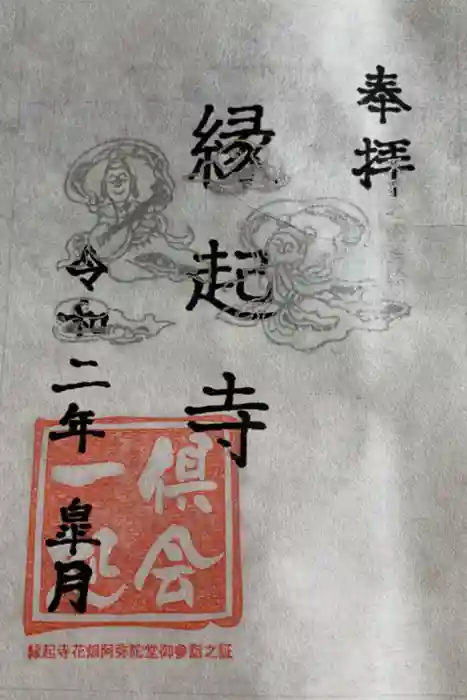 奉拝
縁起寺
令和二年皐月
倶会一処
縁起寺花畑阿弥陀堂御参詣之証